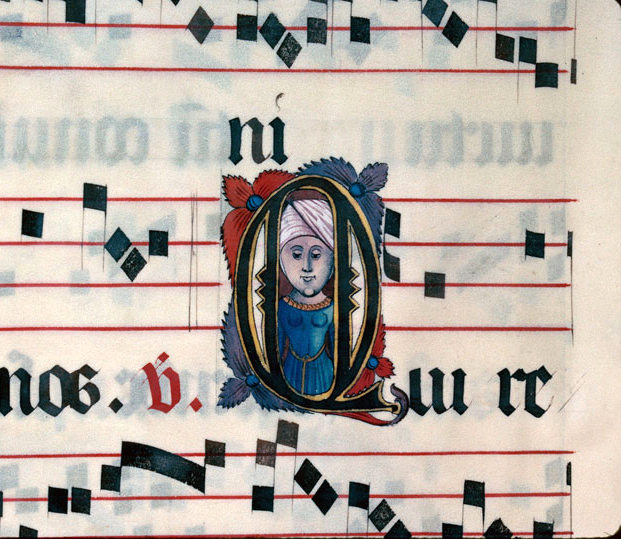 ni
nos. ℣. Qui re